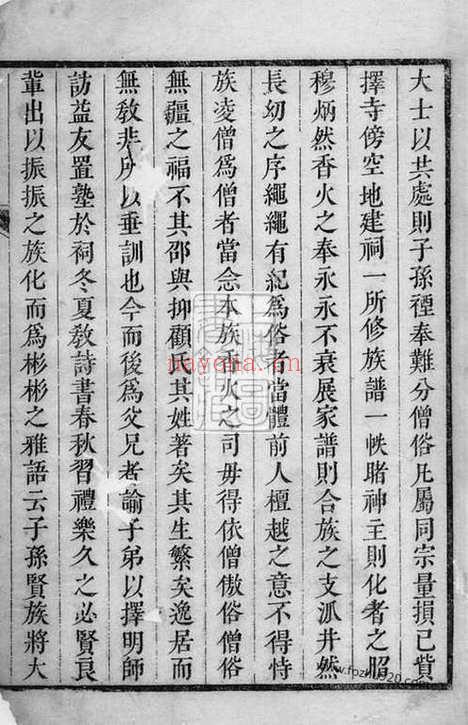 大士以共處則子孫禋奉難分僧俗凡屬同宗量損已貲
擇寺傍空地建祠一所修族譜一帙睹神主則化者之昭
穆炳然香火之奉永永不衰展家譜則合族之支派井然
長幼之序繩繩有紀為俗者當體前人檀越之意不得恃
族凌僧為僧者當念本族香火之司毋得依僧傲俗僧俗
無疆之福不其卲與抑顧氏其姓著矣其生繁矣逸居而
無敎非所以垂訓也今而後為父兄者諭子弟以擇明師
訪益友置塾於祠冬夏敎詩書春秋習禮樂久之必賢良
輩出以振振之族化而為彬彬之雅語云子孫賢族將大
nayona.cn